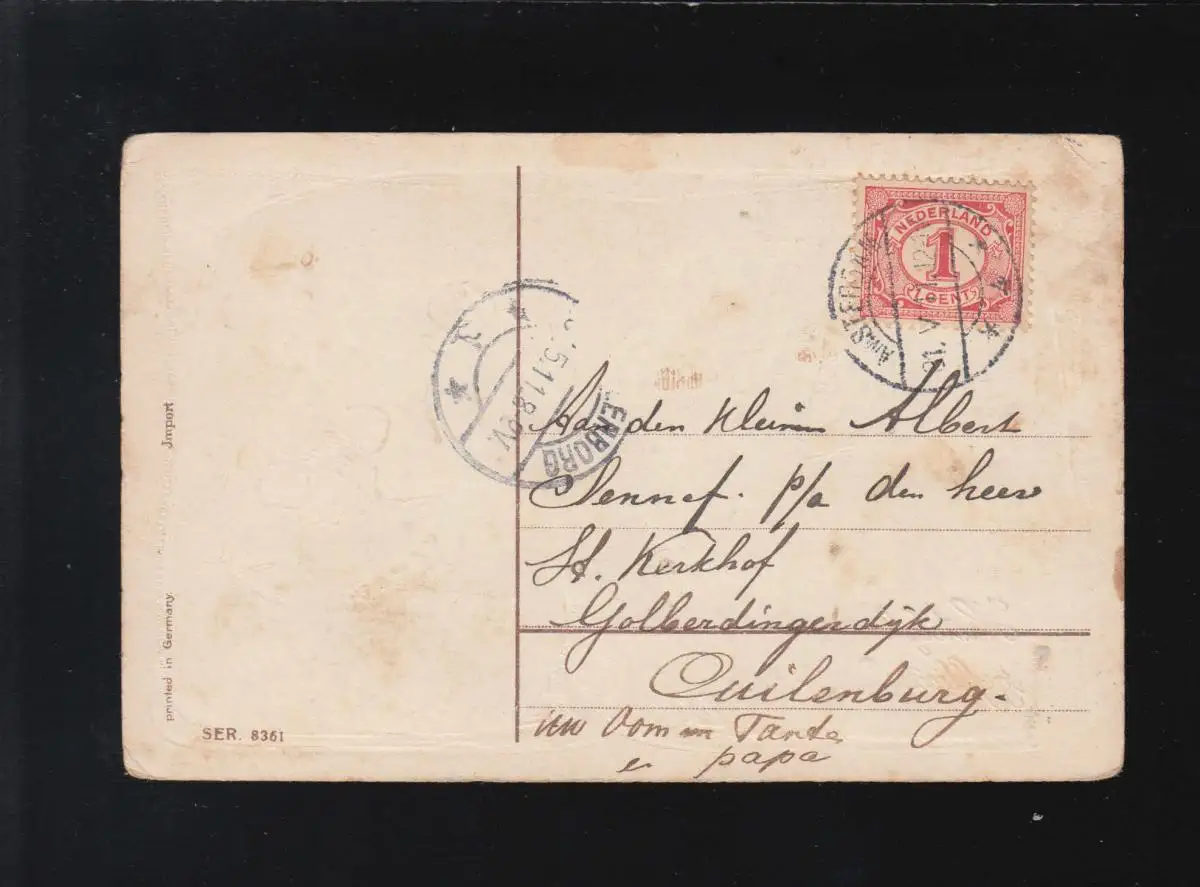 NEDERLAND
1
CENT
AMSTERDAM
5.11.8
ENBORG
Aan den Kleinen Albert
Jennef. p/a den heer
H. Kerkhof
Golberdingerdijk
Cuilenburg.
Oom en Tante
en papa
Jmport
printed in Germany.
SER. 8361